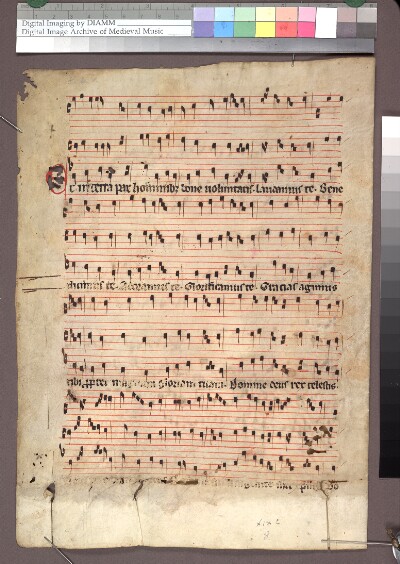 Digital Imaging by DIAMM
Digital Image Archive of Medieval Music
Et in terra pax hominibꝫ bone uoluntatis. Laudamus te. Bene
dicimus te. Adoramus te. Glorificamus te. Gracias agimus
tibi ꝓpter magnam gloriam tuam. Domine deus rex celestis